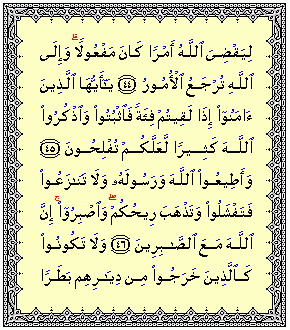 لِيَقْضِىَ ٱللَّهُ أَمْرًا كَانَ مَفْعُولًا ۗ وَإِلَى
ٱللَّهِ تُرْجَعُ ٱلْأُمُورُ ٤٤ يَـٰٓأَيُّهَا ٱلَّذِينَ
ءَامَنُوٓا۟ إِذَا لَقِيتُمْ فِئَةً فَٱثْبُتُوا۟ وَٱذْكُرُوا۟
ٱللَّهَ كَثِيرًا لَّعَلَّكُمْ تُفْلِحُونَ ٤٥
وَأَطِيعُوا۟ ٱللَّهَ وَرَسُولَهُۥ وَلَا تَنَـٰزَعُوا۟
فَتَفْشَلُوا۟ وَتَذْهَبَ رِيحُكُمْ ۖ وَٱصْبِرُوٓا۟ ۚ إِنَّ
ٱللَّهَ مَعَ ٱلصَّـٰبِرِينَ ٤٦ وَلَا تَكُونُوا۟
كَٱلَّذِينَ خَرَجُوا۟ مِن دِيَـٰرِهِم بَطَرًا